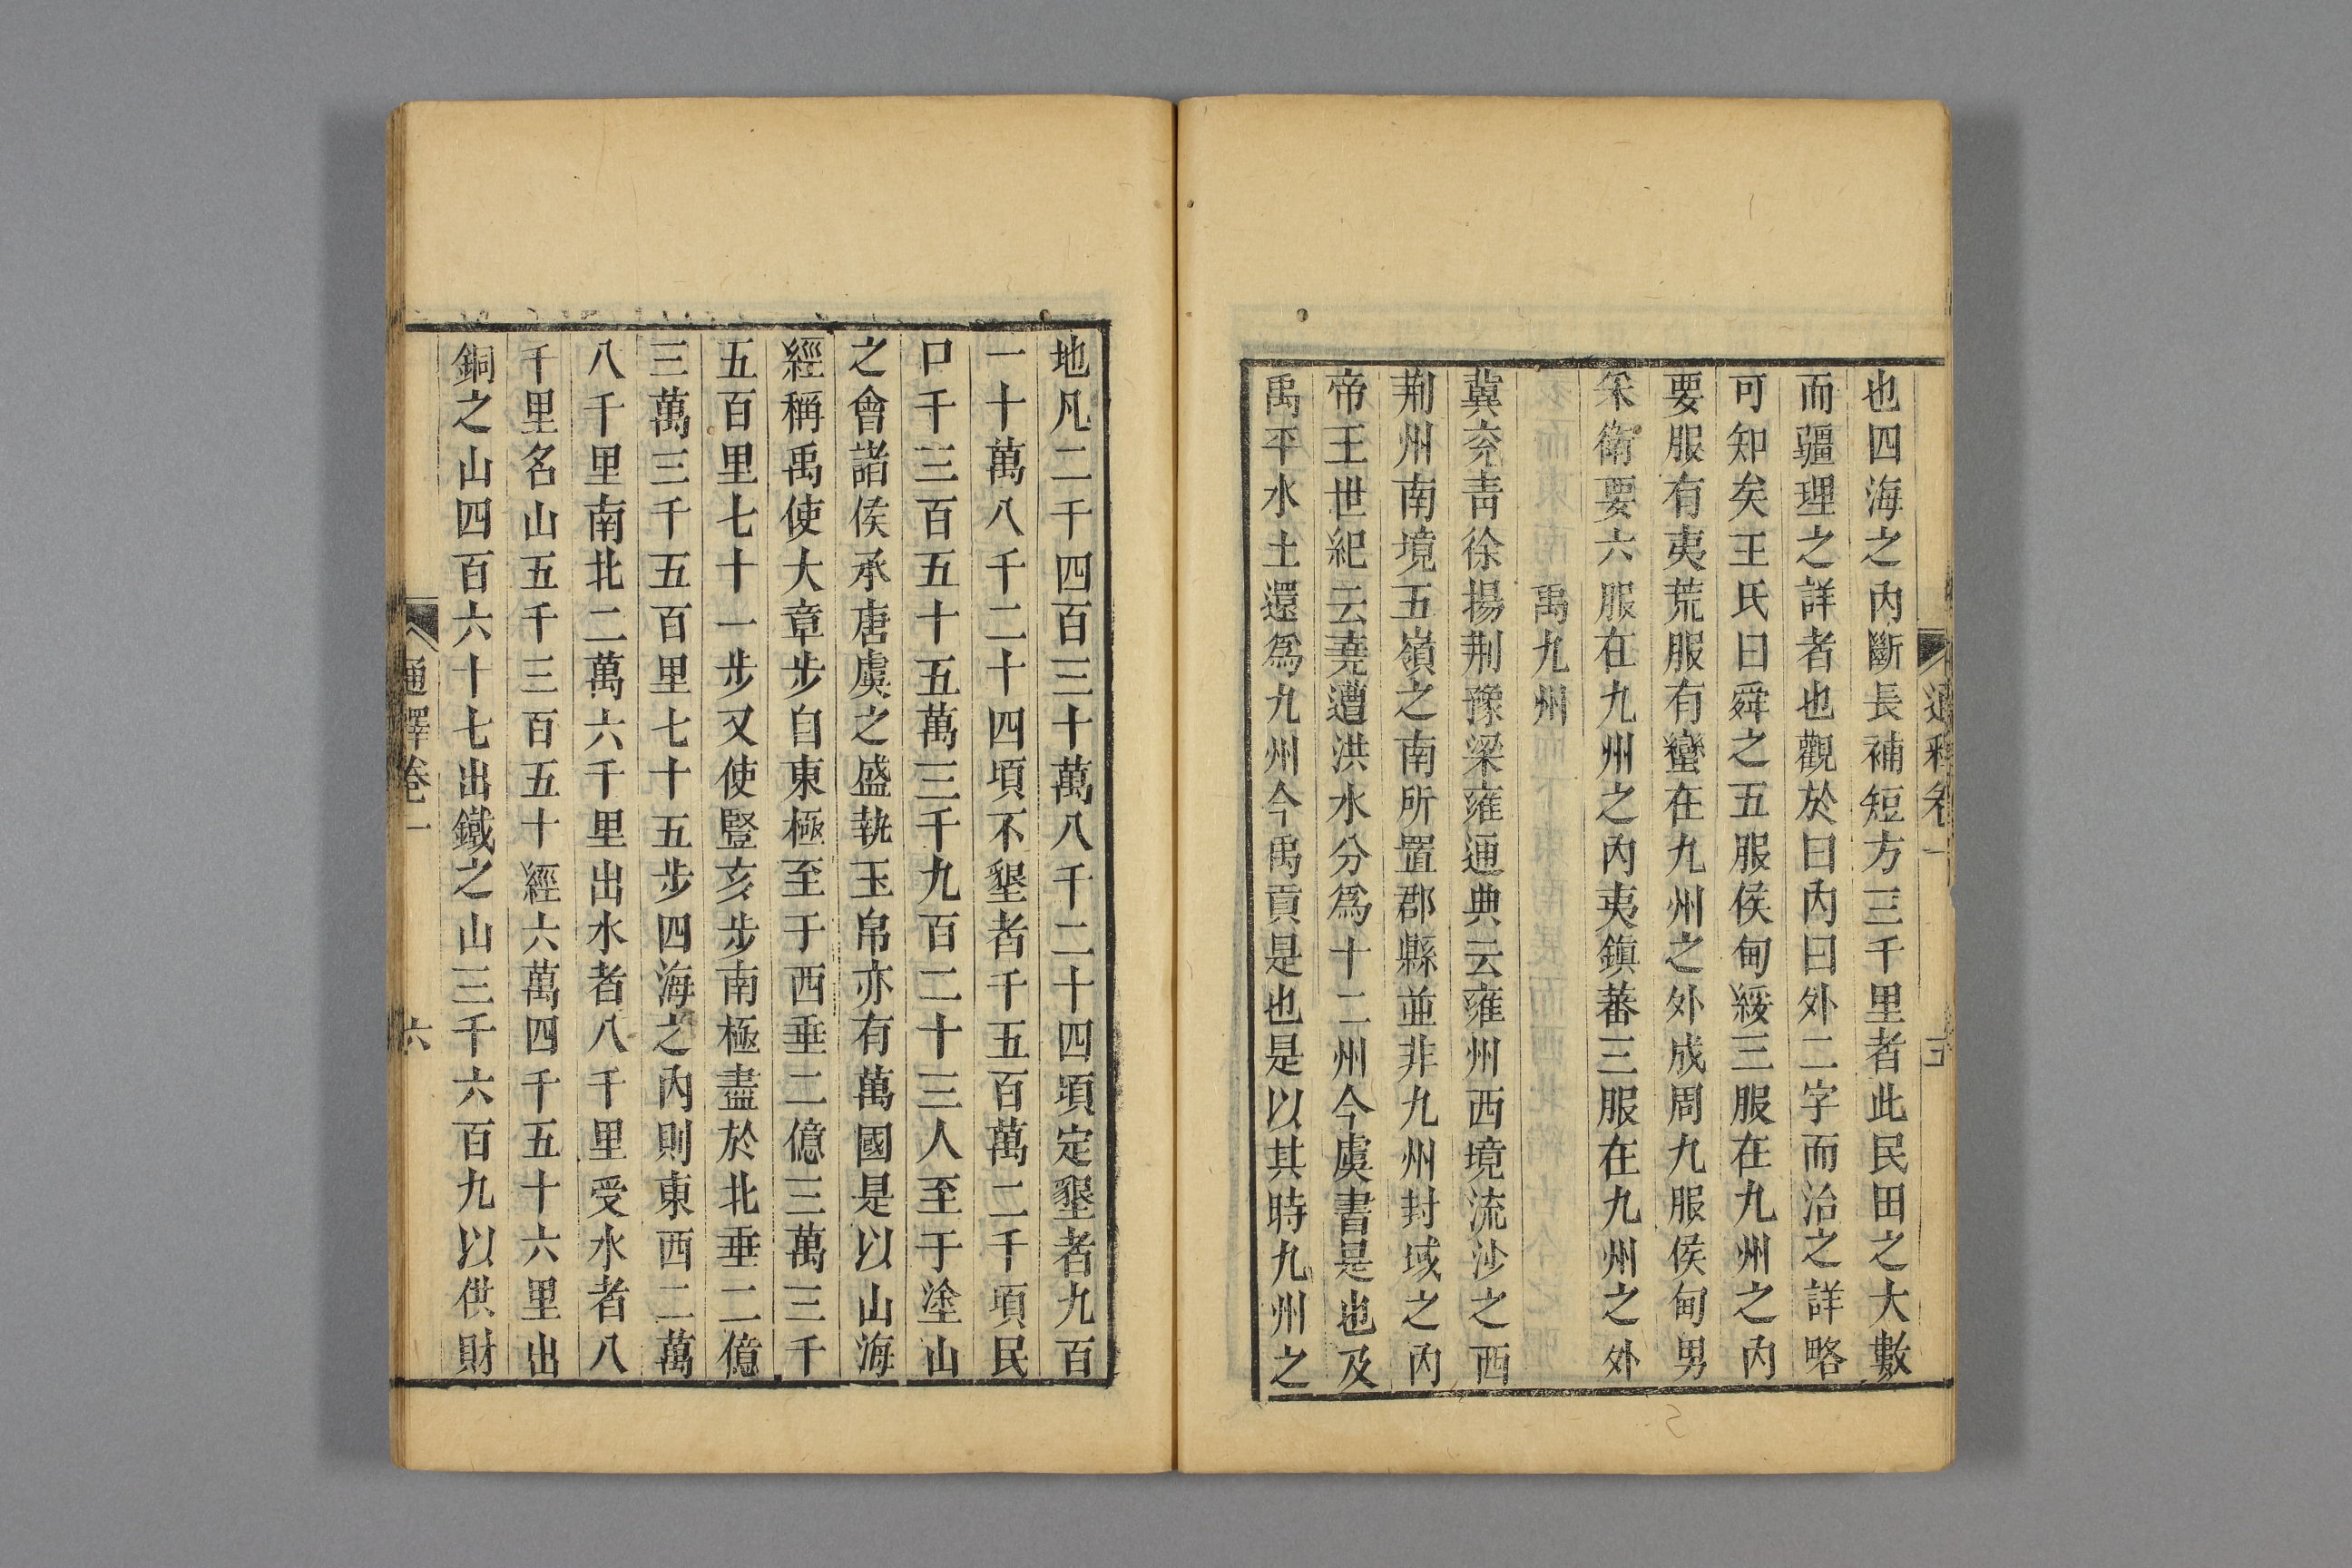 也四海之內斷長補短方三千里者此民田之大數
而疆理之詳者也觀於曰內曰外二字而治之詳略
可知矣王氏曰舜之五服侯甸綏三服在九州之內
要服有夷荒服有蠻在九州之外成周九服侯甸男
采衛要六服在九州之內夷鎮蕃三服在九州之外
禹九州
冀兖靑徐揚荆豫梁雍通典云雍州西境流沙之西
荆州南境五嶺之南所置郡縣並非九州封域之內
帝王世紀云堯遭洪水分爲十二州今虞書是也及
禹平水土還爲九州今禹貢是也是以其時九州之
地凡二千四百三十萬八千二十四頃定墾者九百
一十萬八千二十四頃不墾者千五百萬二千頃民
口千三百五十五萬三千九百二十三人至于塗山
之會諸侯承唐虞之盛執玉帛亦有萬國是以山海
經稱禹使大章步自東極至于西垂二億三萬三千
五百里七十一步又使豎亥步南極盡於北垂二億
三萬三千五百里七十五步四海之內則東西二萬
八千里南北二萬六千里出水者八千里受水者八
千里名山五千三百五十經六萬四千五十六里出
銅之山四百六十七出鐵之山三千六百九以供財
通釋卷一
六